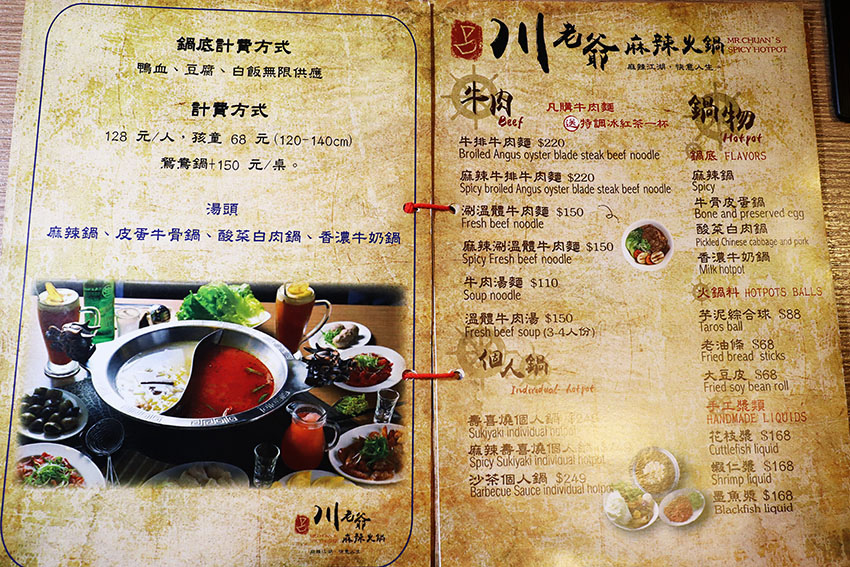 鍋底計費方式
鴨血、豆腐、白飯無限供應
計費方式
128 元/人，孩童 68 元 (120-140cm)
鴛鴦鍋+150 元/桌。
湯頭
麻辣鍋、皮蛋牛骨鍋、酸菜白肉鍋、香濃牛奶鍋
川老爺
麻辣火鍋
麻辣江湖，快意人生
川老爺 麻辣火鍋
MR.CHUAN'S
SPICY HOTPOT
麻辣江湖，快意人生
牛肉
Beef
凡購牛肉麵
送 特調冰紅茶一杯
牛排牛肉麵 $220
Broiled Angus oyster blade steak beef noodle
麻辣牛排牛肉麵 $220
Spicy broiled Angus oyster blade steak beef noodle
涮溫體牛肉麵 $150
Fresh beef noodle
麻辣涮溫體牛肉麵 $150
Spicy Fresh beef noodle
牛肉湯麵 $110
Soup noodle
溫體牛肉湯 $150
Fresh beef soup (3-4人份)
個人鍋
Individual hotpot
壽喜燒個人鍋
Sukiyaki individual hotpot
麻辣壽喜燒個人鍋
Spicy Sukiyaki individual hotpot
沙茶個人鍋 $249
Barbecue Sauce individual hotpot
鍋物
Hotpot
鍋底 FLAVORS
麻辣鍋
Spicy
牛骨皮蛋鍋
Bone and preserved egg
酸菜白肉鍋
Pickled Chinese cabbage and pork
香濃牛奶鍋
Milk hotpot
火鍋料 HOTPOTS BALLS
芋泥綜合球 $88
Taros ball
老油條 $68
Fried bread sticks
大豆皮 $68
Fried soy bean roll
手工漿類
HANDMADE LIQUIDS
花枝漿 $168
Cuttlefish liquid
蝦仁漿 $168
Shrimp liquid
墨魚漿 $168
Blackfish liquid